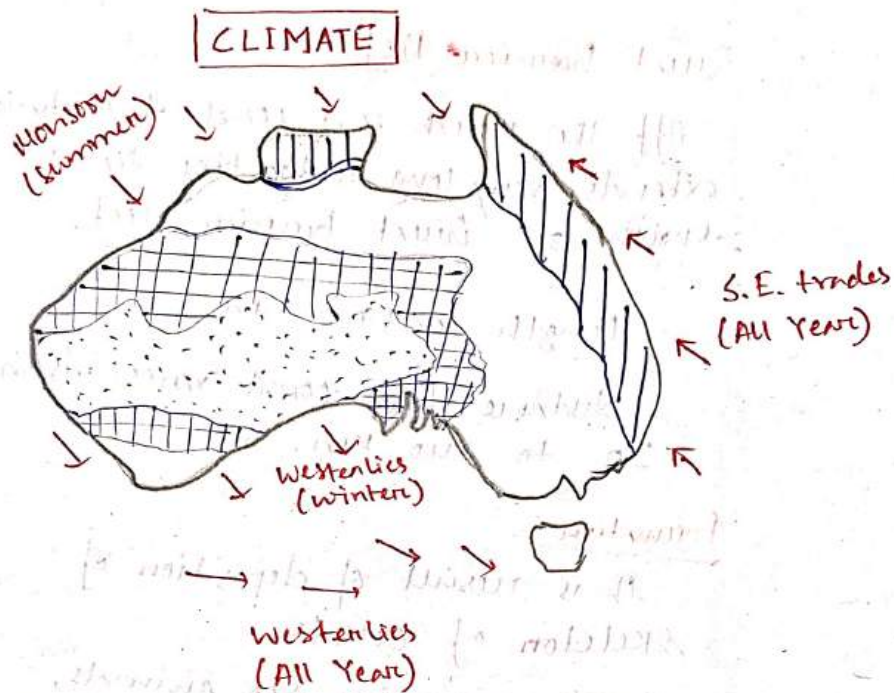 CLIMATE
Monsoon
(Summer)
S.E. trades
(All Year)
Westerlies
(Winter)
Westerlies
(All Year)